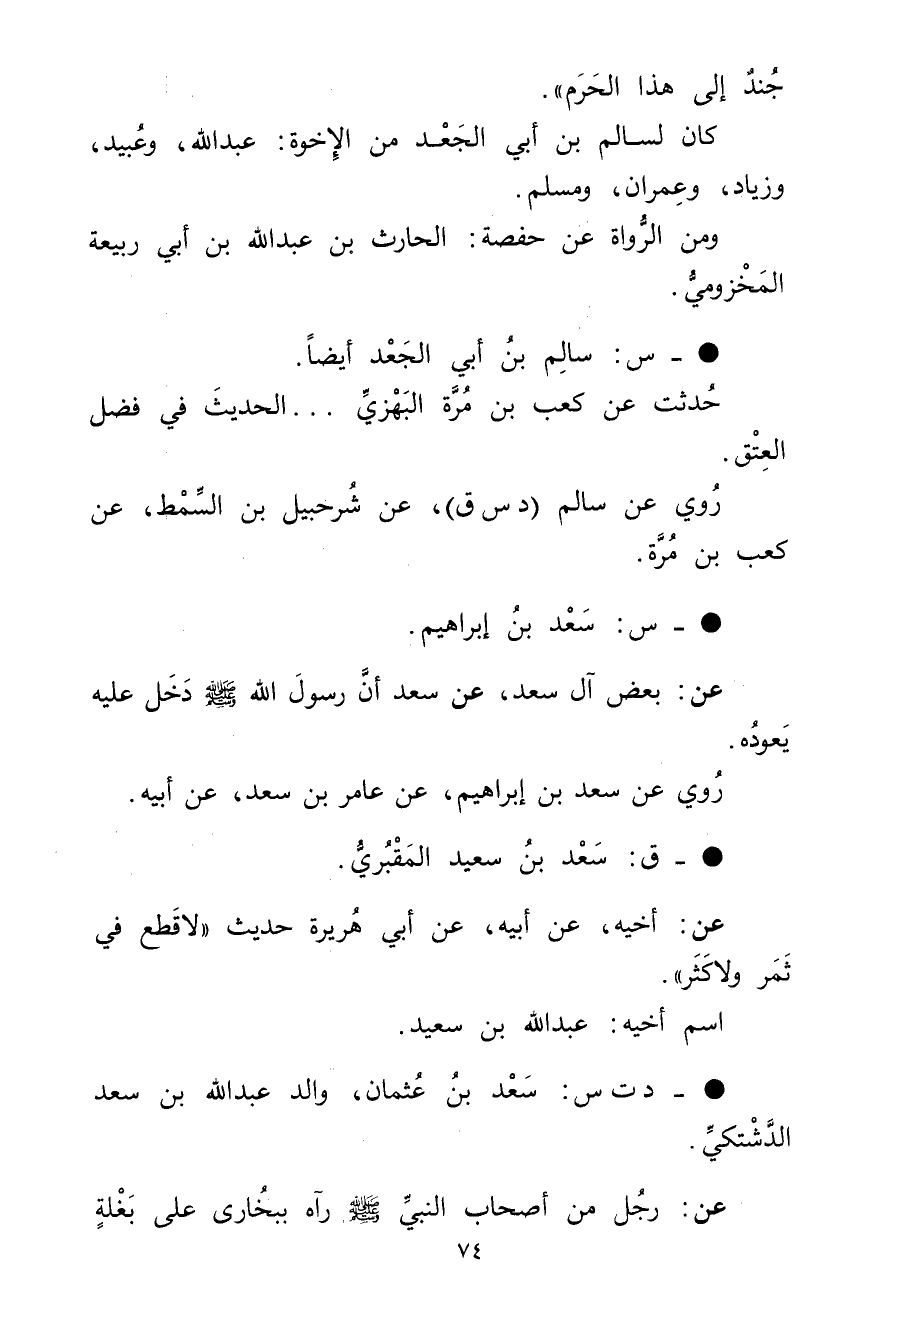 جُندٌ إلى هذا الحَرَم».
كان لسالم بن أبي الجَعْد من الإخوة: عبدالله، وعُبيد،
وزياد، وعِمران، ومسلم.
ومن الرُّواة عن حفصة: الحارث بن عبدالله بن أبي ربيعة
المَخْزوميُّ.
● ـ س: سالِم بنُ أبي الجَعْد أيضاً.
حُدثت عن كعب بن مُرَّة البَهْزيِّ ... الحديثَ في فضل
العِتْق.
رُوي عن سالم (د س ق)، عن شُرحبيل بن السِّمْط، عن
كعب بن مُرَّة.
● ـ س: سَعْد بنُ إبراهيم.
عن: بعض آل سعد، عن سعد أنَّ رسولَ الله ﷺ دَخَل عليه
يَعودُه.
رُوي عن سعد بن إبراهيم، عن عامر بن سعد، عن أبيه.
● ـ ق: سَعْد بنُ سعيد المَقْبُريُّ.
عن: أخيه، عن أبيه، عن أبي هُريرة حديث «لاقَطع في
ثَمَر ولاكَثَر».
اسم أخيه: عبدالله بن سعيد.
● ـ د ت س: سَعْد بنُ عُثمان، والد عبدالله بن سعد
الدَّشْتكيِّ.
عن: رجُل من أصحاب النبيِّ ﷺ رآه ببخُارى على بَغْلةٍ
٧٤